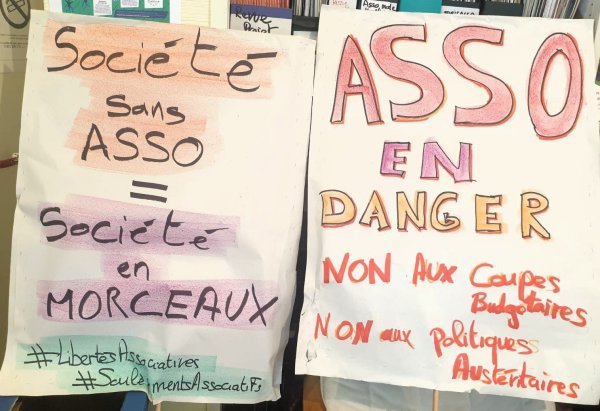 Société
sans
ASSO
=
Société
en
MORCEAUX
#LibertésAssociatives
#SoulèvementsAssociatifs
ASSO
EN
DANGER
NON AUX Coupes
Budgétaires
NON aux politiques
Austéritaires
Revue
Projet